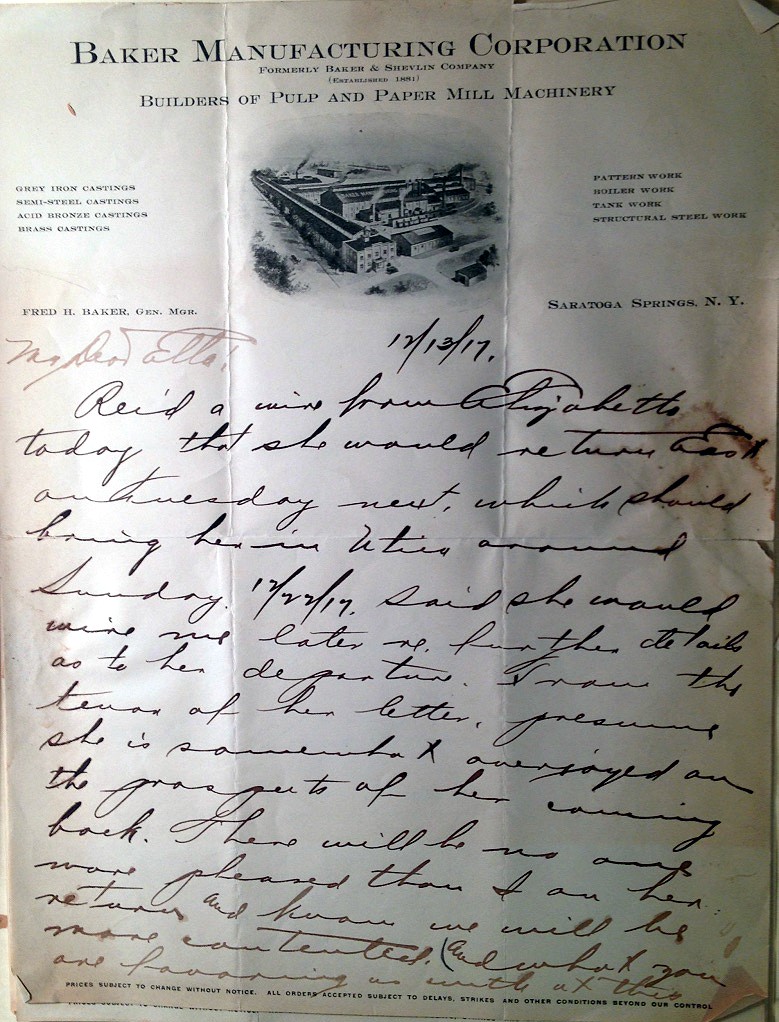 BAKER MANUFACTURING CORPORATION
FORMERLY BAKER & SHEVLIN COMPANY
(ESTABLISHED 1881)
BUILDERS OF PULP AND PAPER MILL MACHINERY
GREY IRON CASTINGS
SEMI-STEEL CASTINGS
ACID BRONZE CASTINGS
BRASS CASTINGS
PATTERN WORK
BOILER WORK
TANK WORK
STRUCTURAL STEEL WORK
FRED H. BAKER, GEN. MGR.
SARATOGA SPRINGS, N. Y.
12/13/17.
My Dear Etta!
Rec'd a wire from Elizabeth
today that she would return East
on Tuesday next, which should
bring her in Utica around
Sunday 12/22/17. Said she would
wire me later re. further details
as to her departure. From the
tenor of her letter, presume
she is somewhat overjoyed on
the prospects of her coming
back. There will be no one
more pleased than I on her
return and know we will be
more contented. (And what you
are favoring us with at this
PRICES SUBJECT TO CHANGE WITHOUT NOTICE. ALL ORDERS ACCEPTED SUBJECT TO DELAYS, STRIKES AND OTHER CONDITIONS BEYOND OUR CONTROL